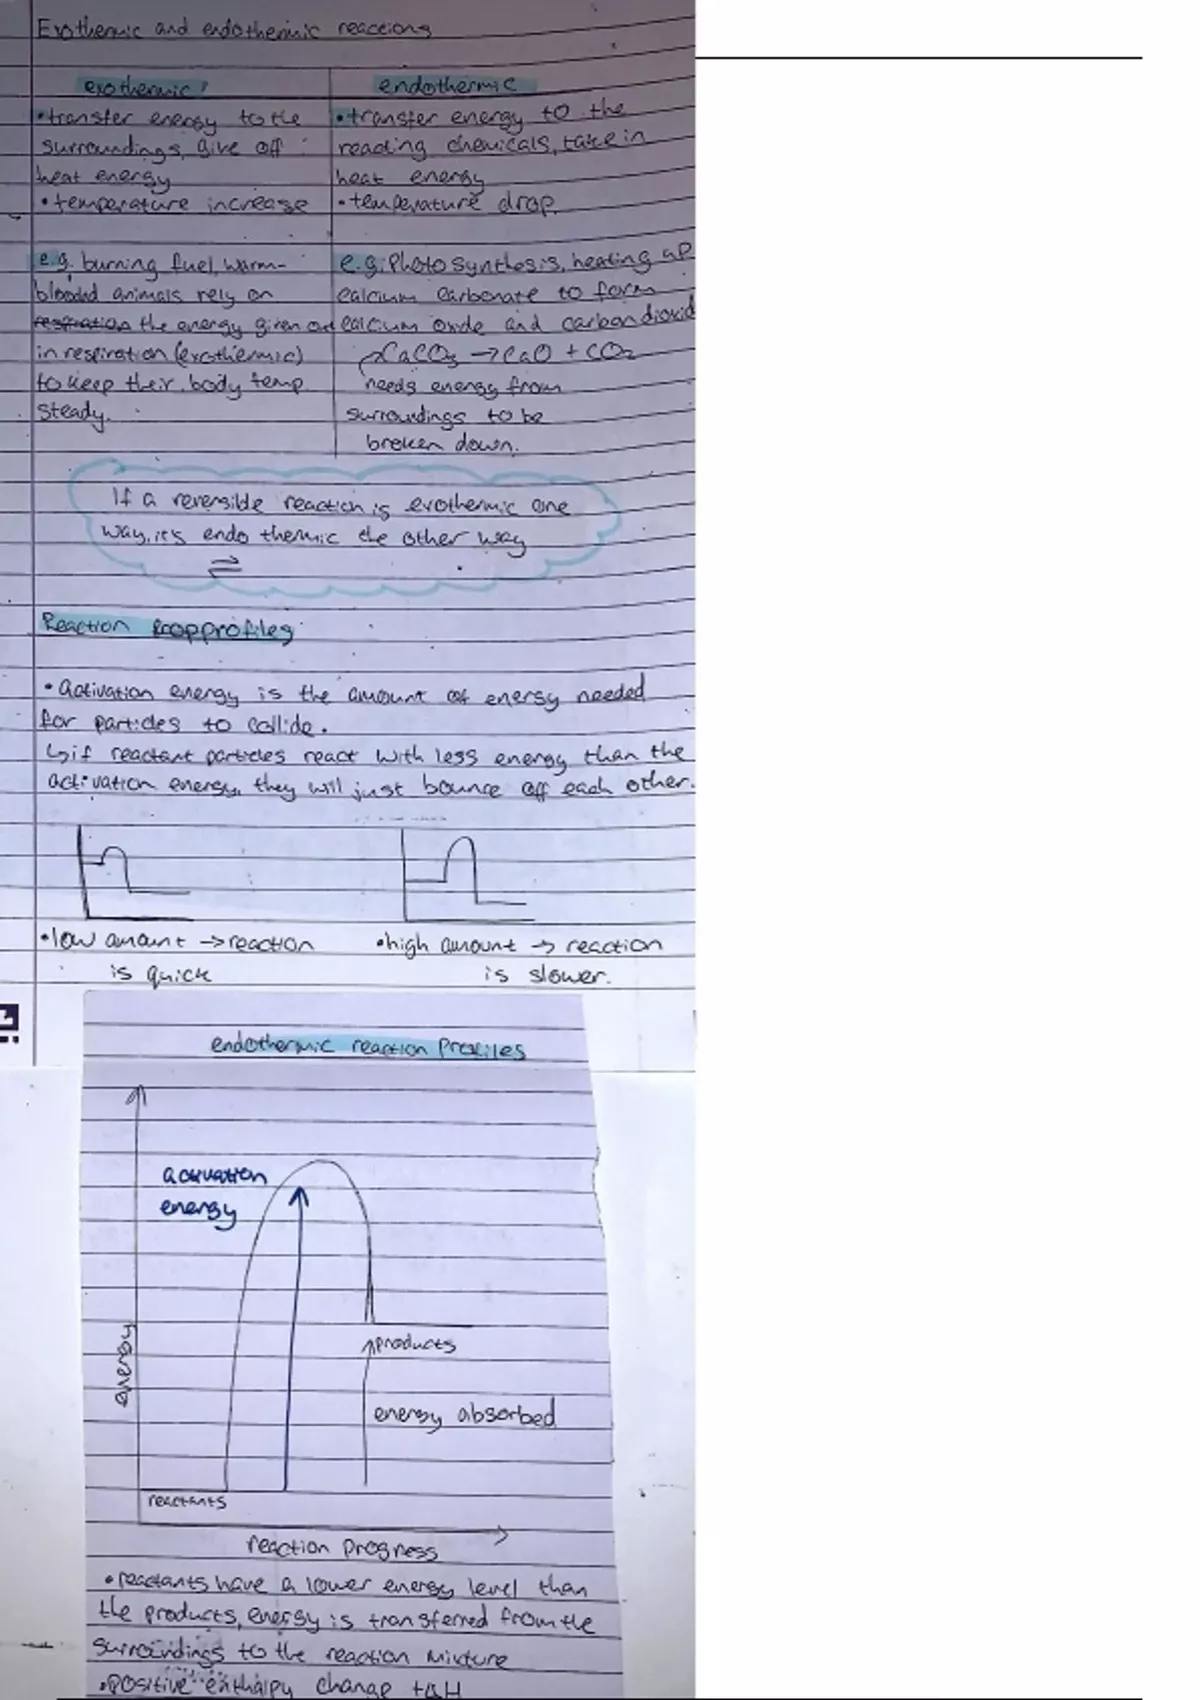 Exothermic and endothermic reactions
exothermic
• transfer energy to the
surroundings, give off
heat energy
• temperature increase
e.g. burning fuel, warm-
blooded animals rely on
respiration the energy given out
in respiration (exothermic)
to keep their body temp
steady.
endothermic
• transfer energy to the
reacting chemicals, take in
heat energy
• temperature drop.
e.g: Photosynthesis, heating up
calcium carbonate to form
calcium oxide and carbon dioxid
CaCO3 → CaO + CO2
needs energy from
surroundings to be
broken down.
If a reversible reaction is exothermic one
way, it's endothermic the other way
⇌
Reaction profiles
• Activation energy is the amount of energy needed
for particles to collide.
↳ if reactant particles react with less energy than the
activation energy, they will just bounce off each other.
• low amount → reaction
is quick
• high amount → reaction
is slower.
endothermic reaction profiles
activation
energy
energy
products
energy absorbed
reactants
reaction progress
• reactants have a lower energy level than
the products, energy is transferred from the
surroundings to the reaction mixture
• positive enthalpy change +ΔH